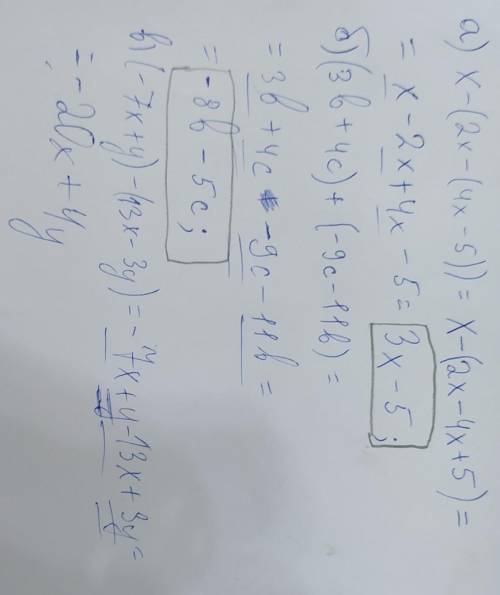 а) x-(2x-(4x-5))=x-(2x-4x+5)=
=x-2x+4x-5=3x-5;
б)(3b+4c)+(-9c-11b)=
=3b+4c-9c-11b=
=-8b-5c;
в)(-7x+y)-(13x-3y)=-7x+y-13x+3y=
=-20x+4y